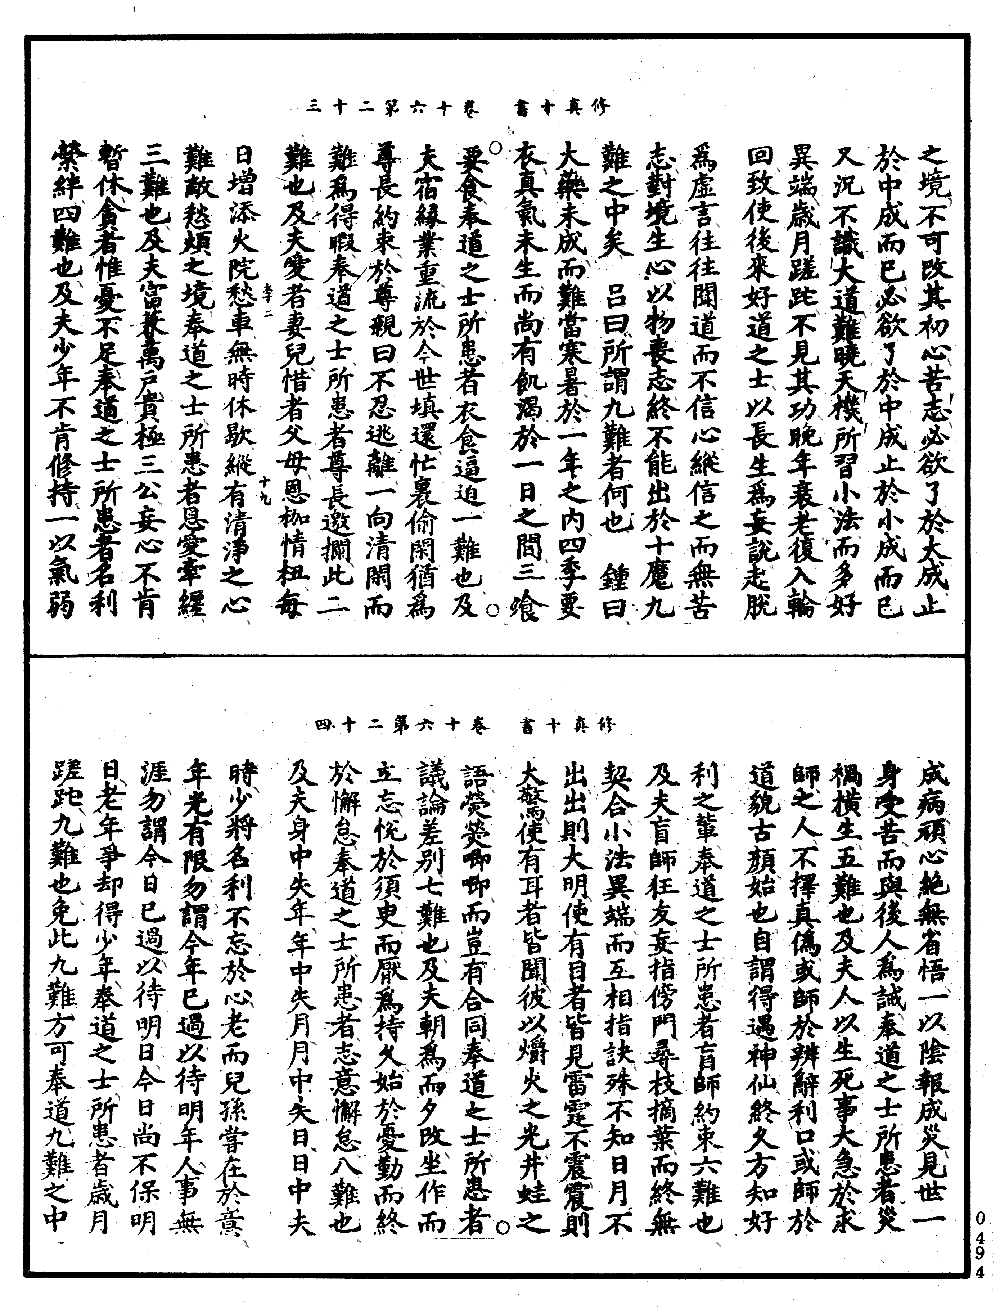 修真十書　卷十六第二十三
之境不可改其初心苦志必欲了於大成止
於中成而已必欲了於中成止於小成而已
又況不識大道難曉天機所習小法而多好
異端歲月蹉跎不見其功晚年衰老復入輪
回致使後來好道之士以長生爲妄說起脫
爲虛言往往聞道而不信心縱信之而無苦
志對境生心以物喪志終不能出於十魔九
難之中矣　呂曰所謂九難者何也　鍾曰
大藥未成而難當寒暑於一年之內四季要
衣真氣未生而尚有飢渴於一日之間三飡
要食奉道之士所患者衣食逼迫一難也及
夫宿緣業重流於今世填還忙裏偷閑猶爲
尊長約束於尊親曰不忍逃離一向清閑而
難爲得暇奉道之士所患者尊長邀攔此二
難也及夫愛者妻兒惜者父母恩枷情杻每
李二
十九
日增添火院愁車無時休歇縱有清淨之心
難敵愁煩之境奉道之士所患者恩愛牽纏
三難也及夫富兼萬戶貴極三公妄心不肯
暫休貪者惟憂不足奉道之士所患者名利
縈絆四難也及夫少年不肯修持一以氣弱
修真十書　卷十六第二十四
成病頑心絕無省悟一以陰報成災見世一
身受苦而與後人爲誡奉道之士所患者災
禍橫生五難也及夫人以生死事大急於求
師之人不擇真僞或師於辨辭利口或師於
道貌古顏始也自謂得遇神仙終久方知好
利之輩奉道之士所患者盲師約束六難也
及夫盲師狂友妄指傍門尋枝摘葉而終無
契合小法異端而互相指訣殊不知日月不
出出則大明使有目者皆見雷霆不震震則
大驚使有耳者皆聞彼以爝火之光井蛙之
語熒熒唧唧而豈有合同奉道之士所患者
議論差別七難也及夫朝爲而夕改坐作而
立忘悅於須臾而厭爲持久始於憂勤而終
於懈怠奉道之士所患者志意懈怠八難也
及夫身中失年年中失月月中失日日中失
時少將名利不忘於心老而兒孫嘗在於意
年光有限勿謂今年已過以待明年人事無
涯勿謂今日已過以待明日今日尚不保明
日老年爭却得少年奉道之士所患者歲月
蹉跎九難也免此九難方可奉道九難之中
0494